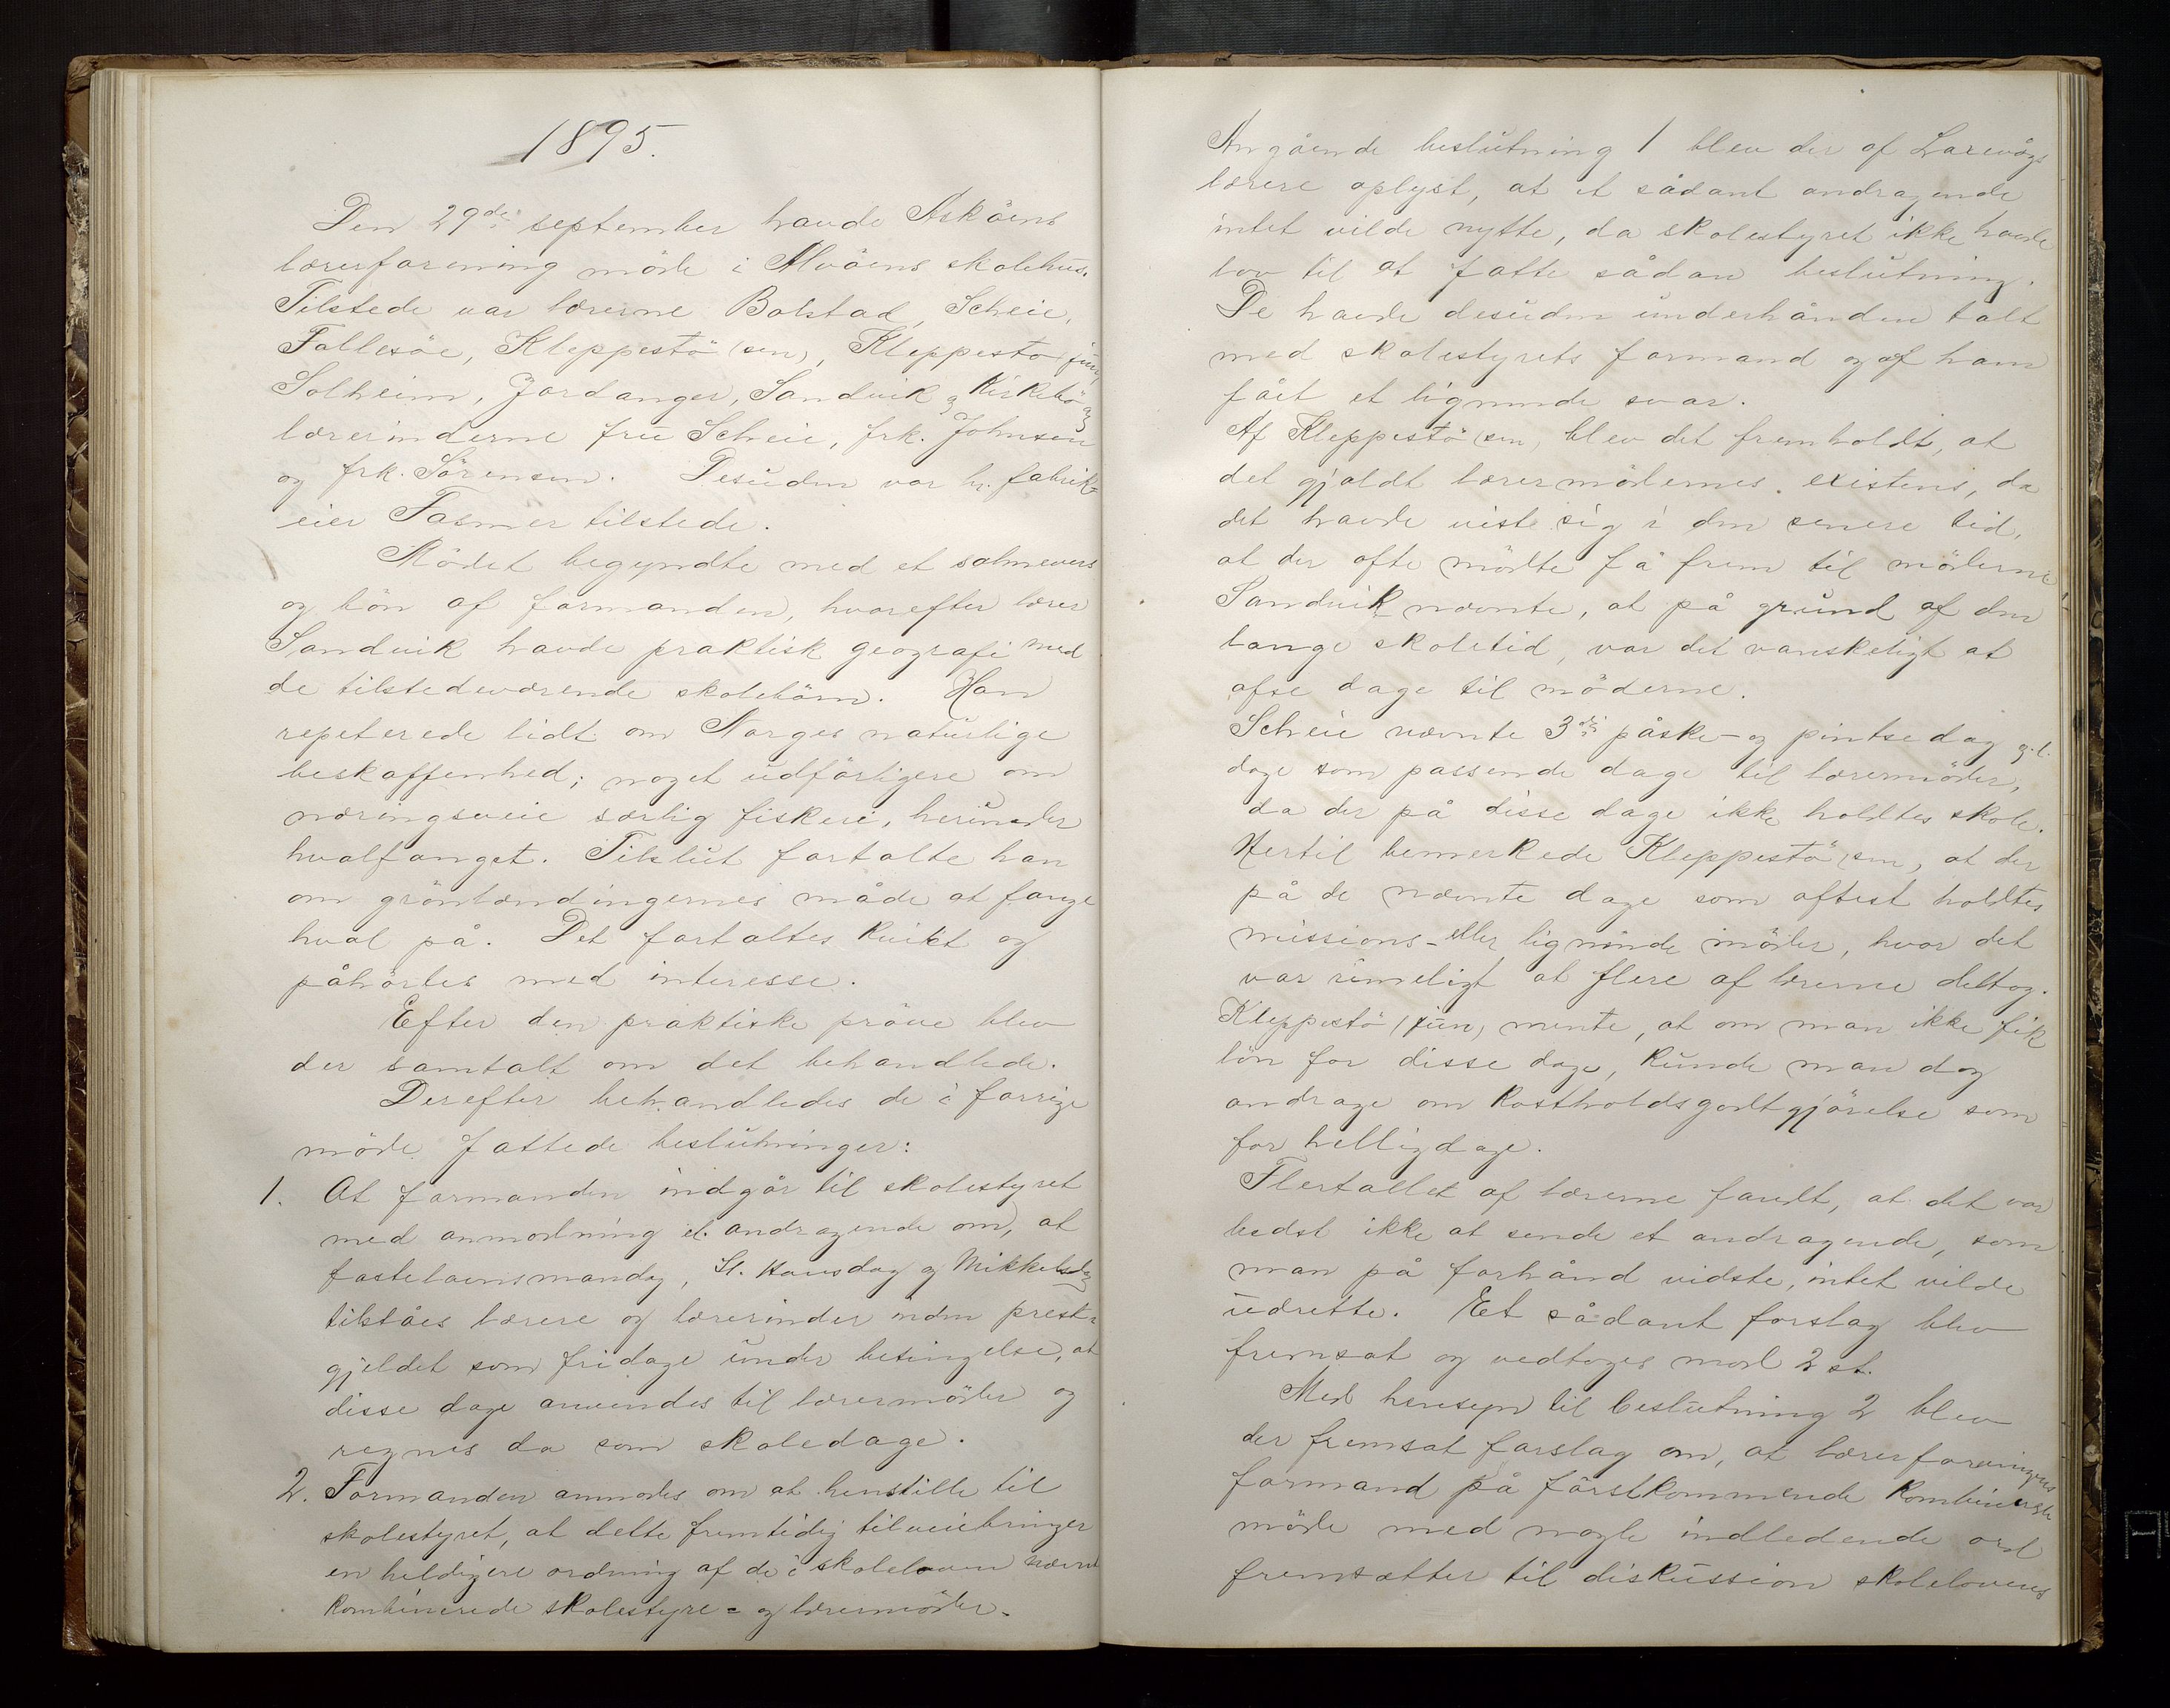 1895.
Den 29de september havde Asköens
lærerforening möde i Alvöens skolehus.
Tilstede var lærerne Bolstad, Scheie,
Follesöe, Kleppestö (sen), Kleppestö (jun),
Solheim, Jordanger, Sandvik og Kirkebö og
lærerinderne fru Scheie, frk. Johnsen
og frk. Sörensen. Desuden var hr. fabrik-
eier Fasmer tilstede.
Mödet begyndte med et salmevers
og bön af formanden, hvorefter lærer
Sandvik havde praktisk geografi med
de tilstedeværende skolebörn. Han
repeterede lidt om Norges naturlige
beskaffenhed; noget udförligere om
næringsveie særlig fiskeri, herunder
hvalfanget. Tilslut fortalte han
om grönlændingernes måde at fange
hval på. Det fortaltes kvikt og
påhörtes med interesse.
Efter den praktiske pröve blev
der samtalt om det behandlede.
Derefter behandledes de i forrige
möde fattede beslutninger:
1. At formanden indgår til skolestyret
med anmodning el. andragende om, at
fastelavnsmandag, St. Hansdag og Mikkelsdag
tilståes lærere og lærerinder inden prest-
gjeldet som fridage under betingelse, at
disse dage anvendes til lærermöder og
regnes da som skoledage.
2. Formanden anmodes om at henstille til
skolestyret, at dette fremtidig tilveiebringer
en heldigere ordning af de i skoleloven nævnte
kombinerede skolestyre- og lærermöder.
Angående beslutning 1 blev der af Laxevågs
lærere oplyst, at et sådant andragende
intet vilde nytte, da skolestyret ikke havde
lov til at fatte sådan beslutning.
De havde desuden underhånden talt
med skolestyrets formand og af ham
fået et lignende svar.
Af Kleppestö (sen) blev det fremholdt, at
det gjaldt lærermödernes existens, da
det havde vist sig i den senere tid,
at der ofte mödte få frem til möderne.
Sandvik nævnte, at på grund af den
lange skoletid, var det vanskeligt at
afse dage til möderne.
Scheie nævnte 3die påske- og pintsedag o.l.
dage som passende dage til lærermöder,
da der på disse dage ikke holdtes skole.
Hertil bemerkede Kleppestö (sen), at der
på de nævnte dage som oftest holdtes
missions- eller lignende möder, hvor det
var rimeligt at flere af lærerne deltog.
Kleppestö (jun) mente, at om man ikke fik
lön for disse dage, kunde man dog
andrage om kostholdsgodtgjörelse som
for helligdage.
Flertallet af lærerne fandt, at det var
bedst ikke at sende et andragende, som
man på forhånd vidste, intet vilde
udrette. Et sådant forslag blev
fremsat og vedtoges mod 2 st.
Med hensyn til beslutning 2 blev
der fremsat forslag om, at lærerforeningens
formand på förstkommende kombinerede
möde med nogle indledende ord
fremsætter til diskussion skolelovens